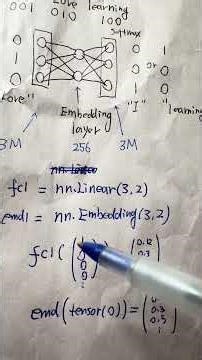 Love learning
001 010 100
Softmax
0 0
0 or 1
1 0
Love" "I" "learning
Embedding
layer
3M 256 3M
fc1 = nn.Linear(3,2)
emd1 = nn.Embedding(3,2)
fc1(
0
0
0.3
emd(tensor(0)) =
0.3
0.5